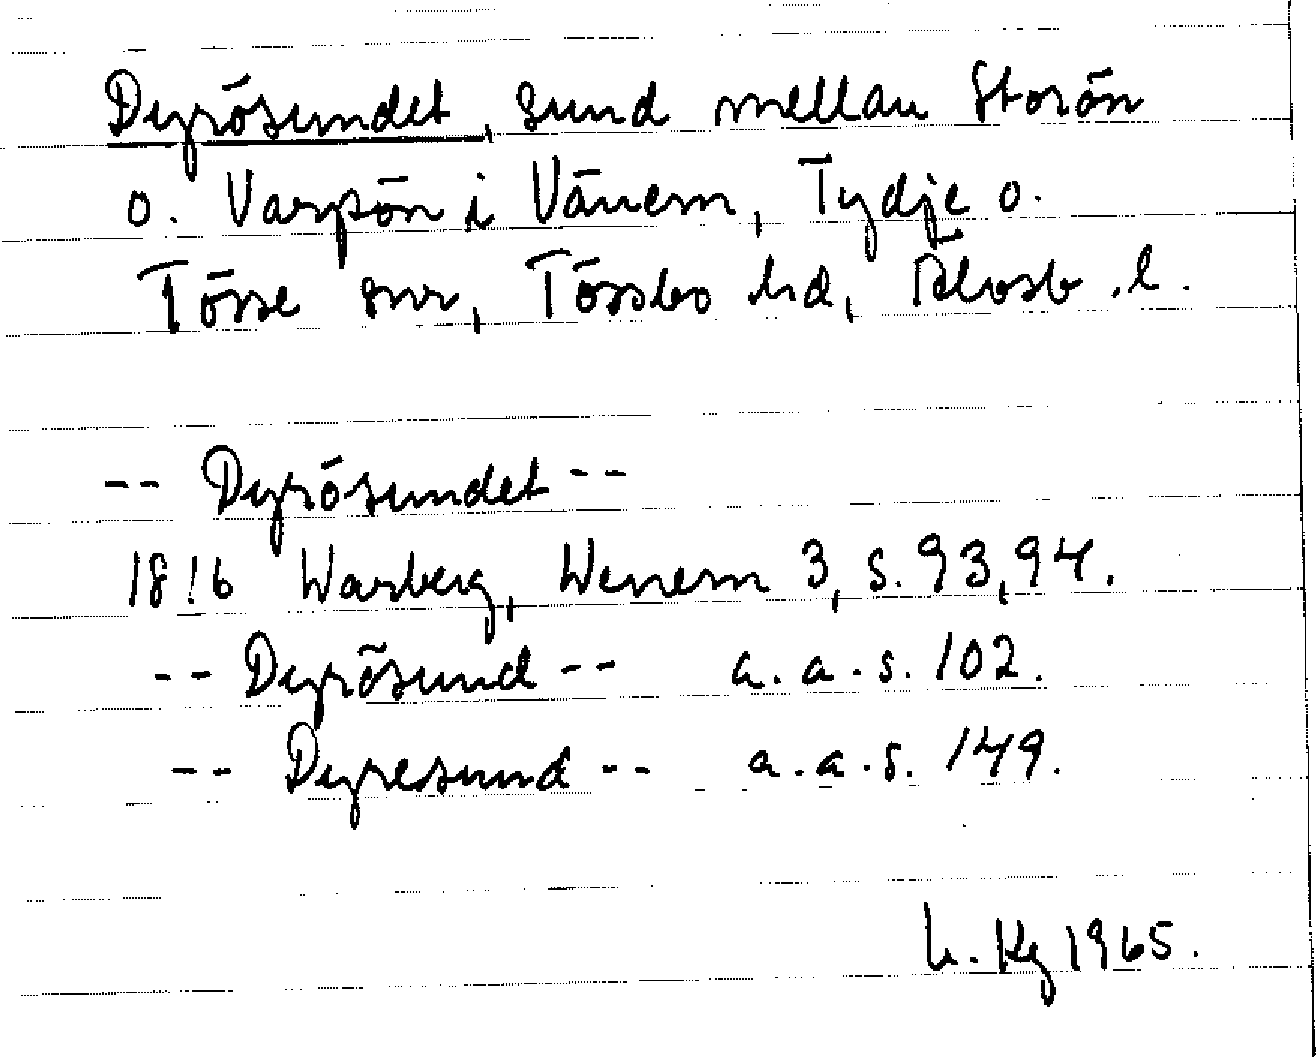 Dyrösundet, sund mellan Storön
o. Varpön i Vänern, Tydje o.
Tösse snr, Tössbo hd, Älvsb. l.
-- Dyrösundet --
1816 Warberg, Wenern 3, s. 93, 94.
-- Dyrösund -- a. a. s. 102.
-- Dyresund -- a. a. s. 149.
Kg 1965.